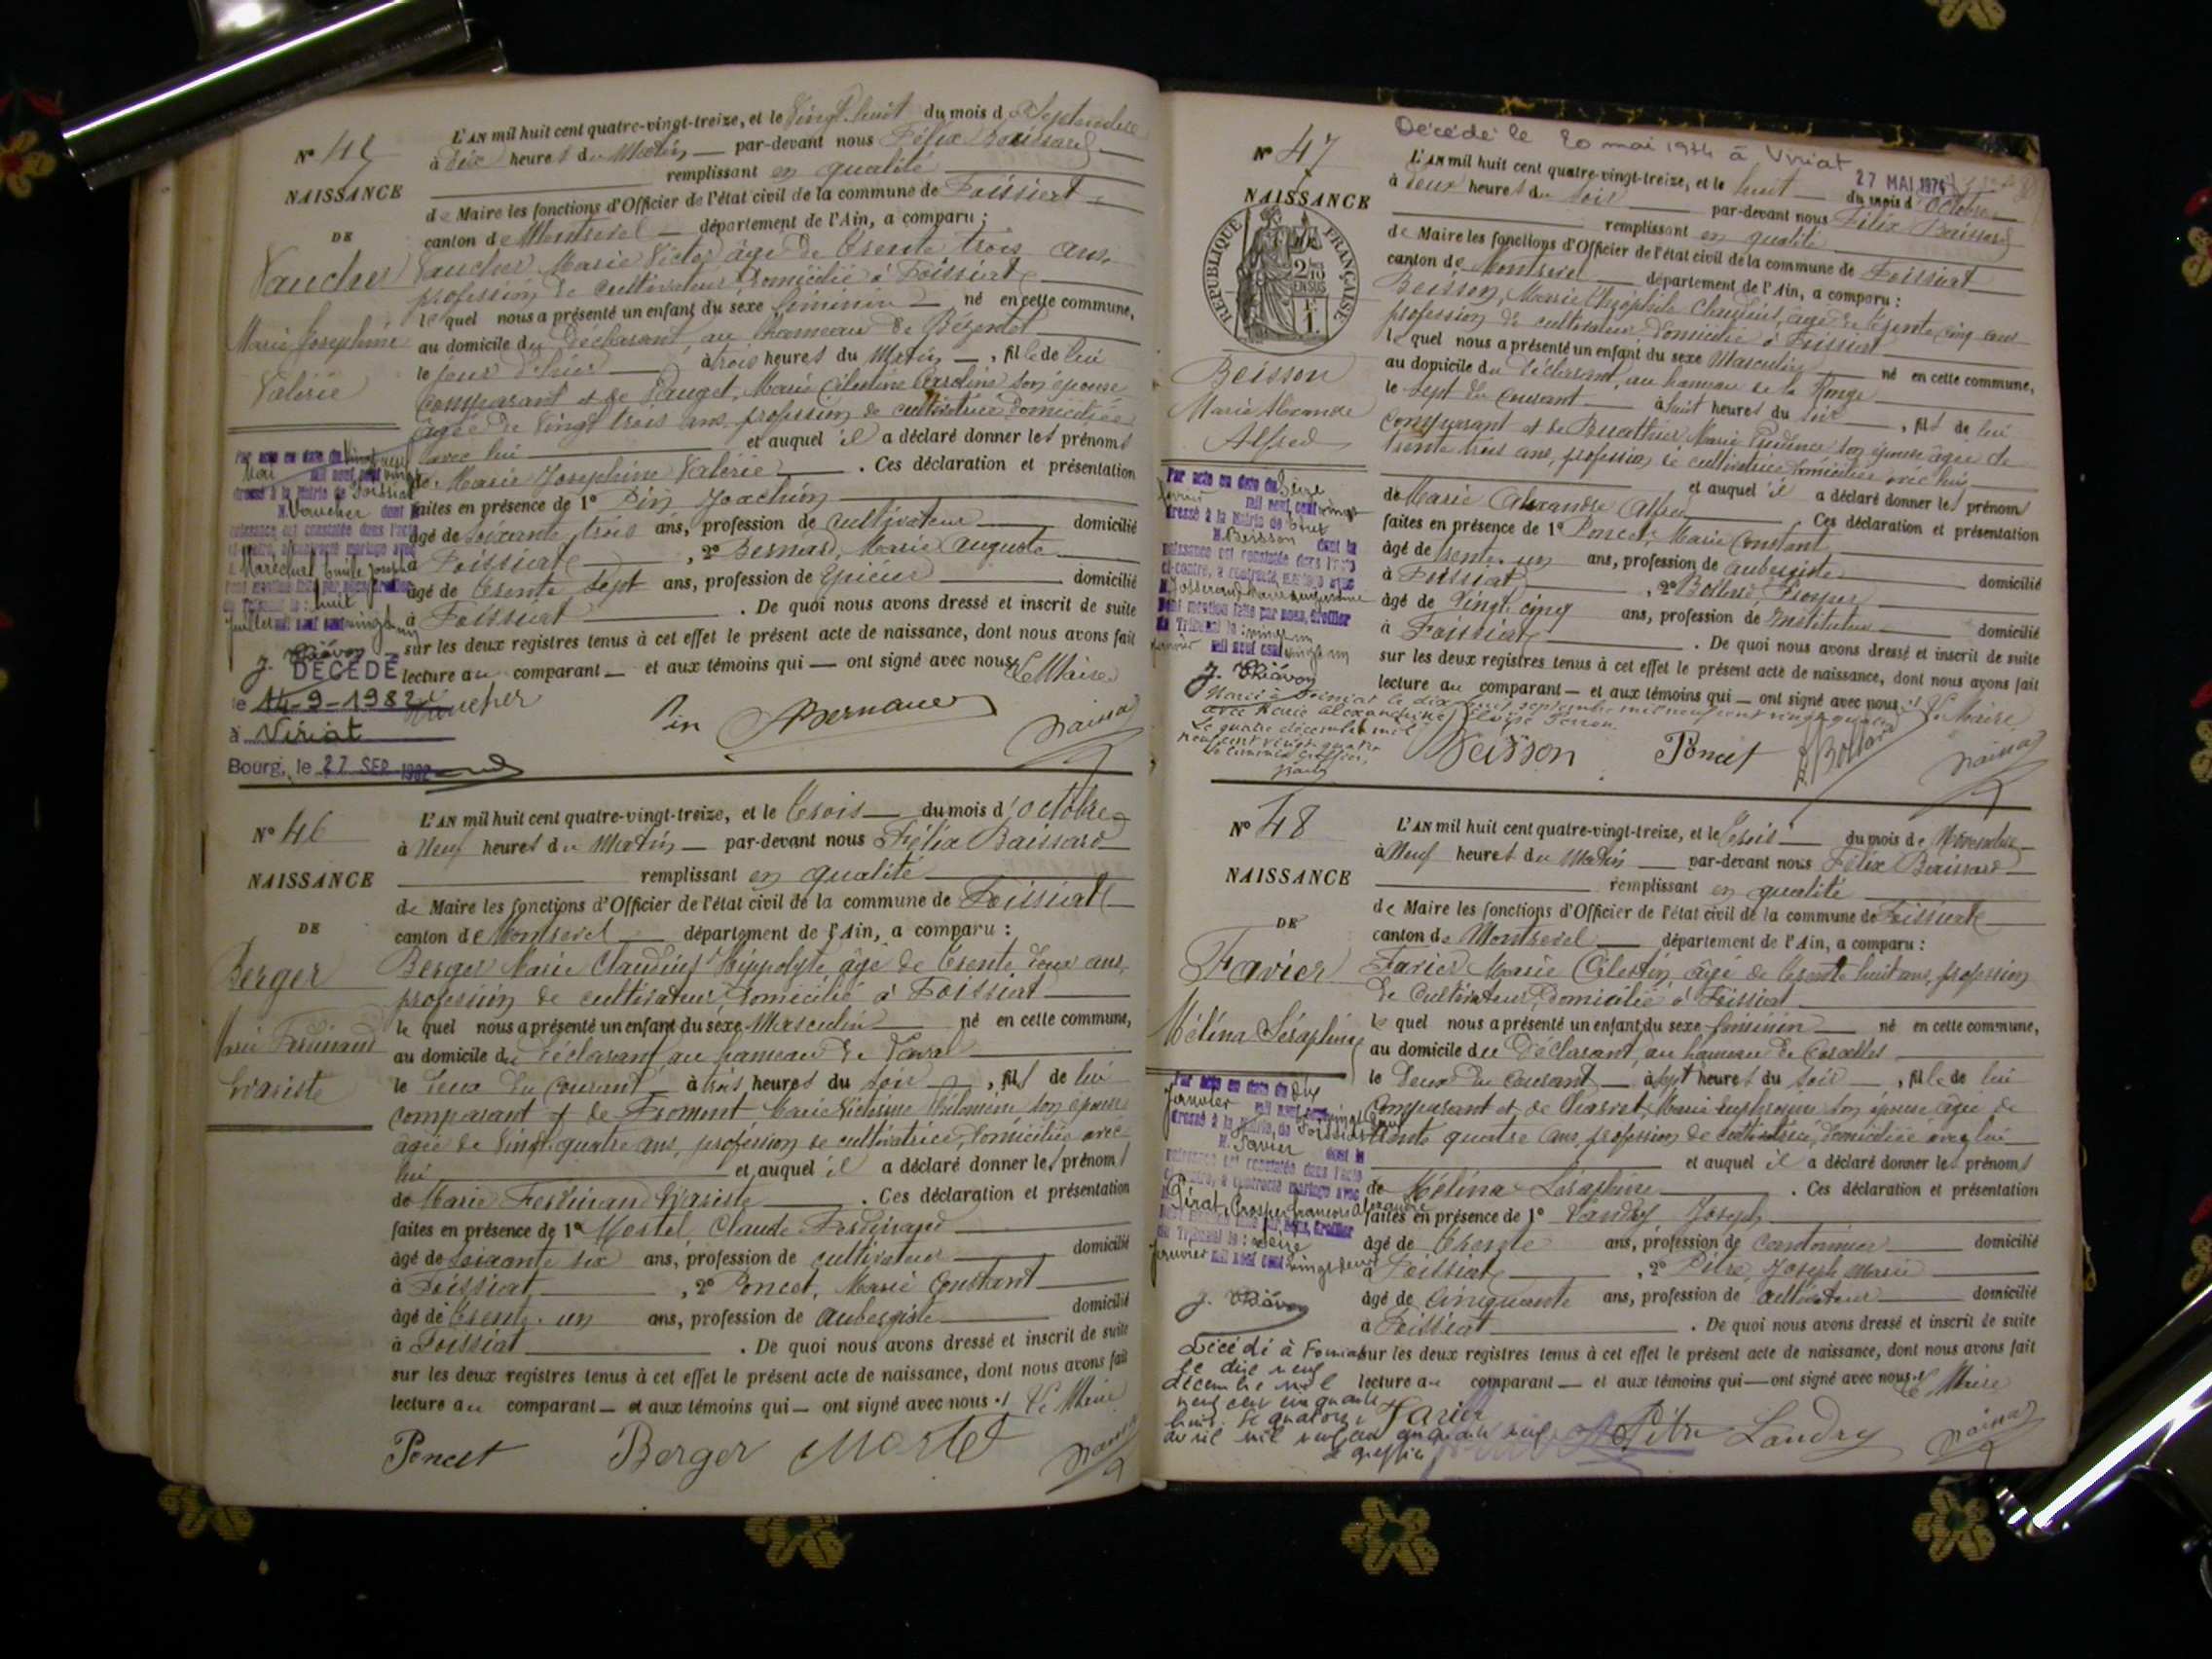 N° 45
NAISSANCE
DE
Vaucher
Marie Josephine
Valérie
L'AN mil huit cent quatre-vingt-treize, et le Vingt huit du mois de Septembre
à dix heures du Matin par-devant nous Félix Baissard
remplissant en qualité
de Maire les fonctions d'Officier de l'état civil de la commune de Foissiat
canton de Montrevel département de l'Ain, a comparu :
Vaucher Marie Victor âgé de trente trois ans,
profession de cultivateur domicilié à Foissiat
le quel nous a présenté un enfant du sexe féminin né en cette commune,
au domicile du déclarant, au hameau de
le jour d'hier à trois heures du Matin, fille de lui
comparant et de Pauget, Marie Célestine Caroline son épouse
âgée de vingt trois ans, profession de cultivatrice domiciliée
avec lui et auquel il a déclaré donner les prénoms
de Marie Josephine Valérie. Ces déclaration et présentation
faites en présence de 1° Pin Joachim
âgé de soixante trois ans, profession de cultivateur domicilié
à Foissiat, 2° Bernard, Marie Auguste
âgé de trente sept ans, profession de Epicier domicilié
à Foissiat. De quoi nous avons dressé et inscrit de suite
sur les deux registres tenus à cet effet le présent acte de naissance, dont nous avons fait
lecture au comparant et aux témoins qui ont signé avec nous. Le Maire
Par acte en date du vingt neuf
Mai mil neuf cent vingt
dressé à la Mairie de Foissiat
M. Vaucher dont la
naissance est constatée dans l'acte
ci-contre, a contracté mariage avec
Maréchal Emile Joseph
Dont mention faite par nous, Greffier
du Tribunal le : huit
Juillet mil neuf cent vingt
DÉCÉDÉ
le 14-9-1982
à Viriat
Bourg, le 27 SEP. 1982
Vaucher Pin Bernard
N° 46
NAISSANCE
DE
Berger
Marie Ferdinand
Evariste
L'AN mil huit cent quatre-vingt-treize, et le trois du mois d'octobre
à Neuf heures du Matin par-devant nous Félix Baissard
remplissant en qualité
de Maire les fonctions d'Officier de l'état civil de la commune de Foissiat
canton de Montrevel département de l'Ain, a comparu :
Berger Marie Claudius Hippolyte, âgé de trente deux ans,
profession de cultivateur domicilié à Foissiat
le quel nous a présenté un enfant du sexe Masculin né en cette commune,
au domicile du déclarant au hameau de
le deux du courant à trois heures du soir, fils de lui
comparant et de Froment Marie Victorine Philomène son épouse
âgée de vingt quatre ans, profession de cultivatrice, domiciliée avec
lui et auquel il a déclaré donner les prénoms
de Marie Ferdinand Evariste. Ces déclaration et présentation
faites en présence de 1° Mortel Claude Ferdinand
âgé de soixante six ans, profession de cultivateur domicilié
à Foissiat, 2° Poncet, Marie Constant
âgé de trente un ans, profession de aubergiste domicilié
à Foissiat. De quoi nous avons dressé et inscrit de suite
sur les deux registres tenus à cet effet le présent acte de naissance, dont nous avons fait
lecture au comparant et aux témoins qui ont signé avec nous. Le Maire
Poncet Berger Mortel
Décédé le 20 mai 1974 à Viriat
27 MAI 1974
N° 47
NAISSANCE
RÉPUBLIQUE FRANÇAISE
Beisson
Marie Alexandre
Alfred
L'AN mil huit cent quatre-vingt-treize, et le huit du mois d'octobre
à deux heures du soir par-devant nous Félix Baissard
remplissant en qualité
de Maire les fonctions d'Officier de l'état civil de la commune de Foissiat
canton de Montrevel département de l'Ain, a comparu :
Beisson, Marie Théophile Claudius, âgé de trente cinq ans
profession de cultivateur domicilié à Foissiat
le quel nous a présenté un enfant du sexe Masculin né en cette commune,
au domicile du déclarant, au hameau de la Ronge
le sept du courant à huit heures du soir, fils de lui
comparant et de Bucathier Marie Prudence son épouse âgée de
trente trois ans, profession de cultivatrice domiciliée avec lui
et auquel il a déclaré donner les prénoms
de Marie Alexandre Alfred Ces déclaration et présentation
faites en présence de 1° Poncet, Marie Constant
âgé de trente un ans, profession de aubergiste domicilié
à Foissiat, 2° Bollard Prosper
âgé de Vingt cinq ans, profession de Instituteur domicilié
à Foissiat. De quoi nous avons dressé et inscrit de suite
sur les deux registres tenus à cet effet le présent acte de naissance, dont nous avons fait
lecture au comparant et aux témoins qui ont signé avec nous. Le Maire
Par acte en date du Seize
mil neuf cent vingt
dressé à la Mairie de
M. Beisson dont la
naissance est constatée dans l'acte
ci-contre, a contracté mariage avec
Josserand
Dont mention faite par nous, Greffier
du Tribunal le : vingt un
mil neuf cent vingt un
Marié à le dix huit septembre mil neuf cent vingt quatre
avec Marie Alexandrine
Le quatre décembre mil
neuf cent vingt quatre
Beisson Poncet Bollard
N° 48
NAISSANCE
DE
Favier
Mélina Séraphine
L'AN mil huit cent quatre-vingt-treize, et le trois du mois de Novembre
à Neuf heures du Matin par-devant nous Félix Baissard
remplissant en qualité
de Maire les fonctions d'Officier de l'état civil de la commune de Foissiat
canton de Montrevel département de l'Ain, a comparu :
Favier Marie Célestin, âgé de trente huit ans, profession
de cultivateur, domicilié à Foissiat
le quel nous a présenté un enfant du sexe féminin né en cette commune,
au domicile du déclarant, au hameau de Corcelles
le deux du courant à sept heures du soir, fille de lui
comparant et de Marie Euphrosine son épouse âgée de
trente quatre ans, profession de cultivatrice, domiciliée avec lui
et auquel il a déclaré donner les prénoms
de Mélina Séraphine. Ces déclaration et présentation
faites en présence de 1° Landry Joseph
âgé de trente ans, profession de cantonnier domicilié
à Foissiat, 2° Pitre, Joseph Marie
âgé de cinquante ans, profession de cultivateur domicilié
à Foissiat. De quoi nous avons dressé et inscrit de suite
sur les deux registres tenus à cet effet le présent acte de naissance, dont nous avons fait
lecture au comparant et aux témoins qui ont signé avec nous. Le Maire
Par acte en date du dix
Janvier mil neuf cent vingt deux
dressé à la Mairie de Foissiat
M. Favier dont la
naissance est constatée dans l'acte
ci-contre, a contracté mariage avec
Pérat, Prosper François Alexandre
Dont mention faite par nous, Greffier
du Tribunal le : seize
Janvier mil neuf cent vingt deux
Décédé à Foissiat
le dix neuf
décembre mil
neuf cent cinquante
huit. Le quatorze
avril mil neuf cent cinquante neuf
Le greffier
Favier Pitre Landry